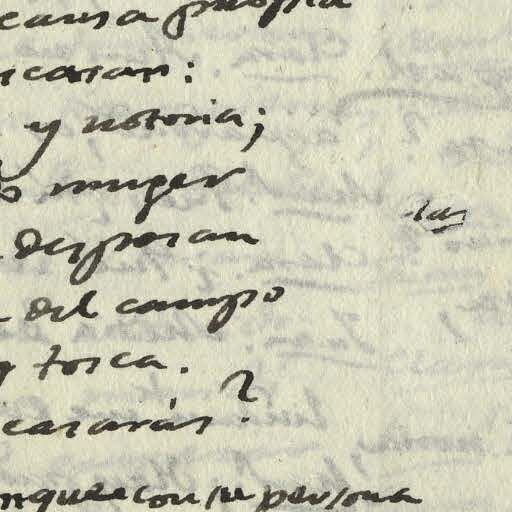 causa propria
y notoria;
muger
desposan
del campo
tosca.
casarás?
aunque con su persona